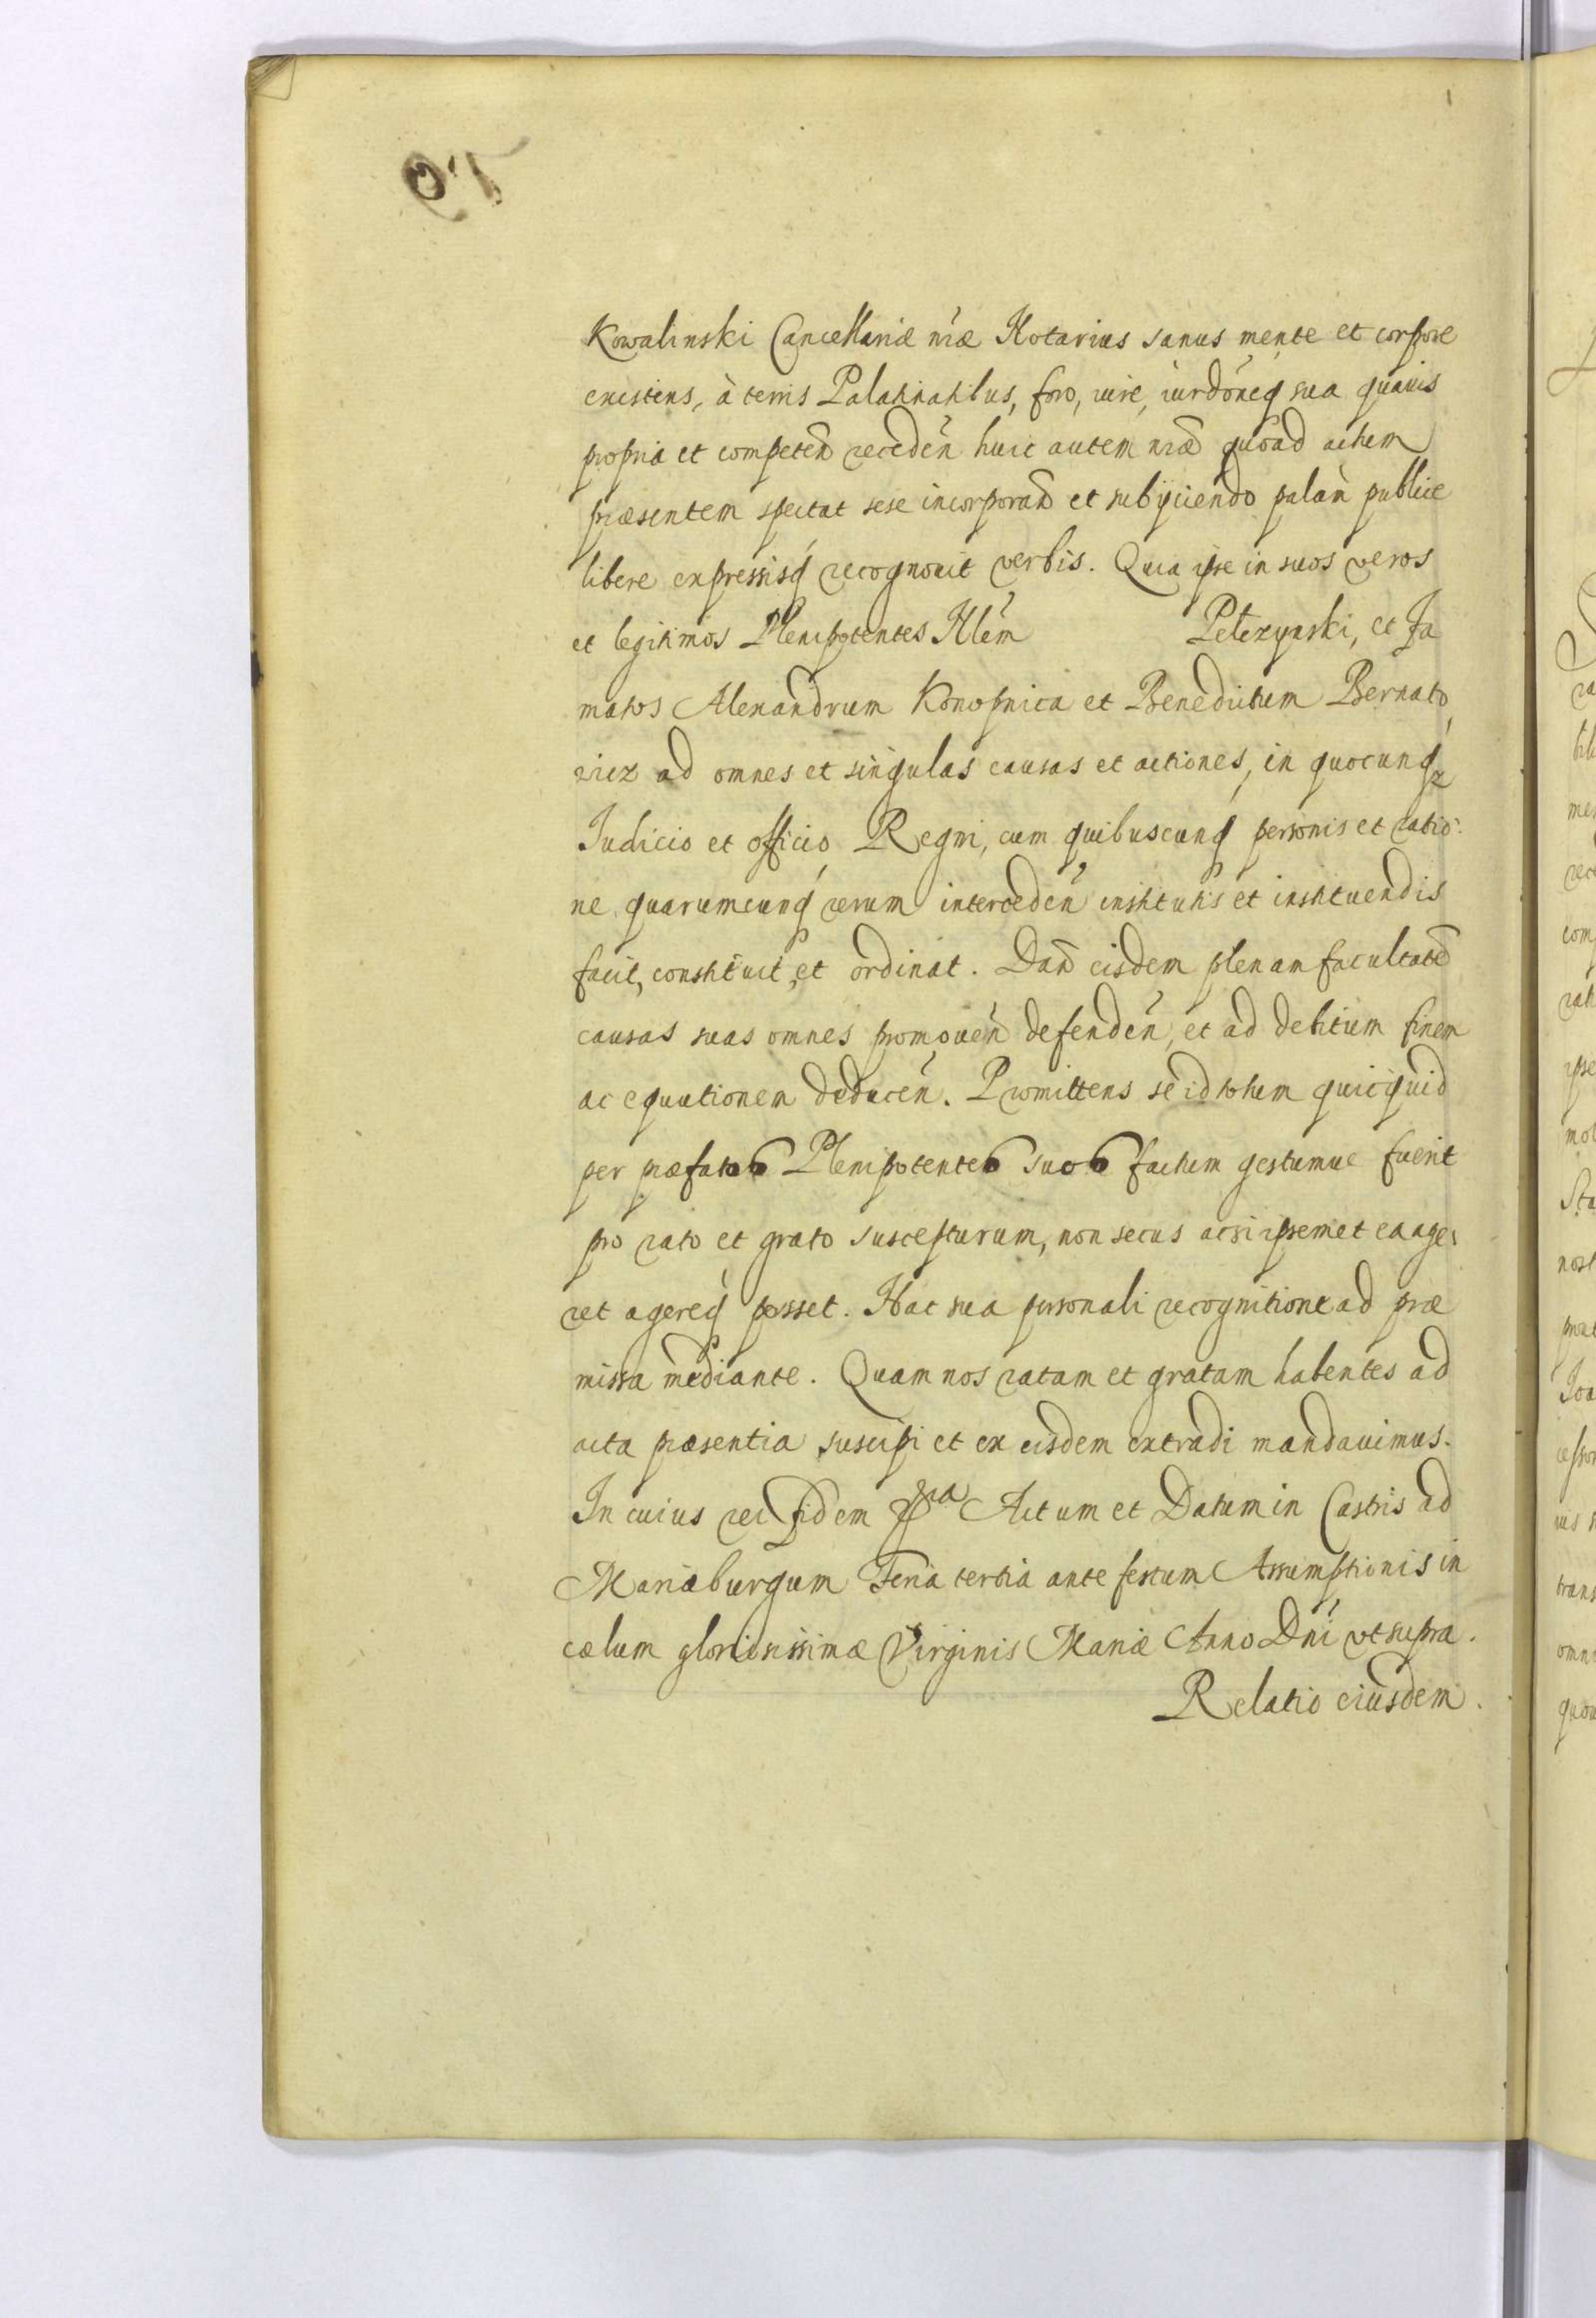 Kowalinski Cancellariæ nr̃æ Notarius sanus mente et corpore
existens, à terris Palatinatibus, foro, iure, iurdõneq sua quauis
propria et competeñ recedeñ huic autem nr̃æ quoad actum
præsentem spectat sese incorporañ et subijciendo palàm publice
libere expressisq recognouit verbis. Quia ipse in suos veros
et legitimos Plenipotentes Nlem̃ Pelczynski, et Fa
matos Alexandrum Konopnica et Benedictum Bernato,
vicz ad omnes et singulas causas et actiones, in quocunqz
Judicio et officio Regni, cum quibuscunq personis et ratio
ne quarumcunq rerum intercedeñ institutis et instituendis
facit, constituit, et ordinat. Dañ eisdem plenam facultatẽ
causas suas omnes promoueñ defendeñ, et ad debitum finem
ac equutionem deduceñ. Promittens se id totum quicquid
per præfatos Plenipotentes suos factum gestumue fuerit
pro rato et grato suscepturum, non secus acsi ipsemet ea age,
ret agereq posset. Hac sua personali recognitione ad præ
missa mediante. Quam nos ratam et gratam habentes ad
acta præsentia suscipi et ex eisdem extradi mandauimus.
In cuius rei fidem Actum et Datum in Castris ad
Mariæburgum Feria tertia ante festum Assumptionis in
cælum gloriosissimæ Virginis Mariæ Anno Dñi vt supra.
Relatio eiusdem.